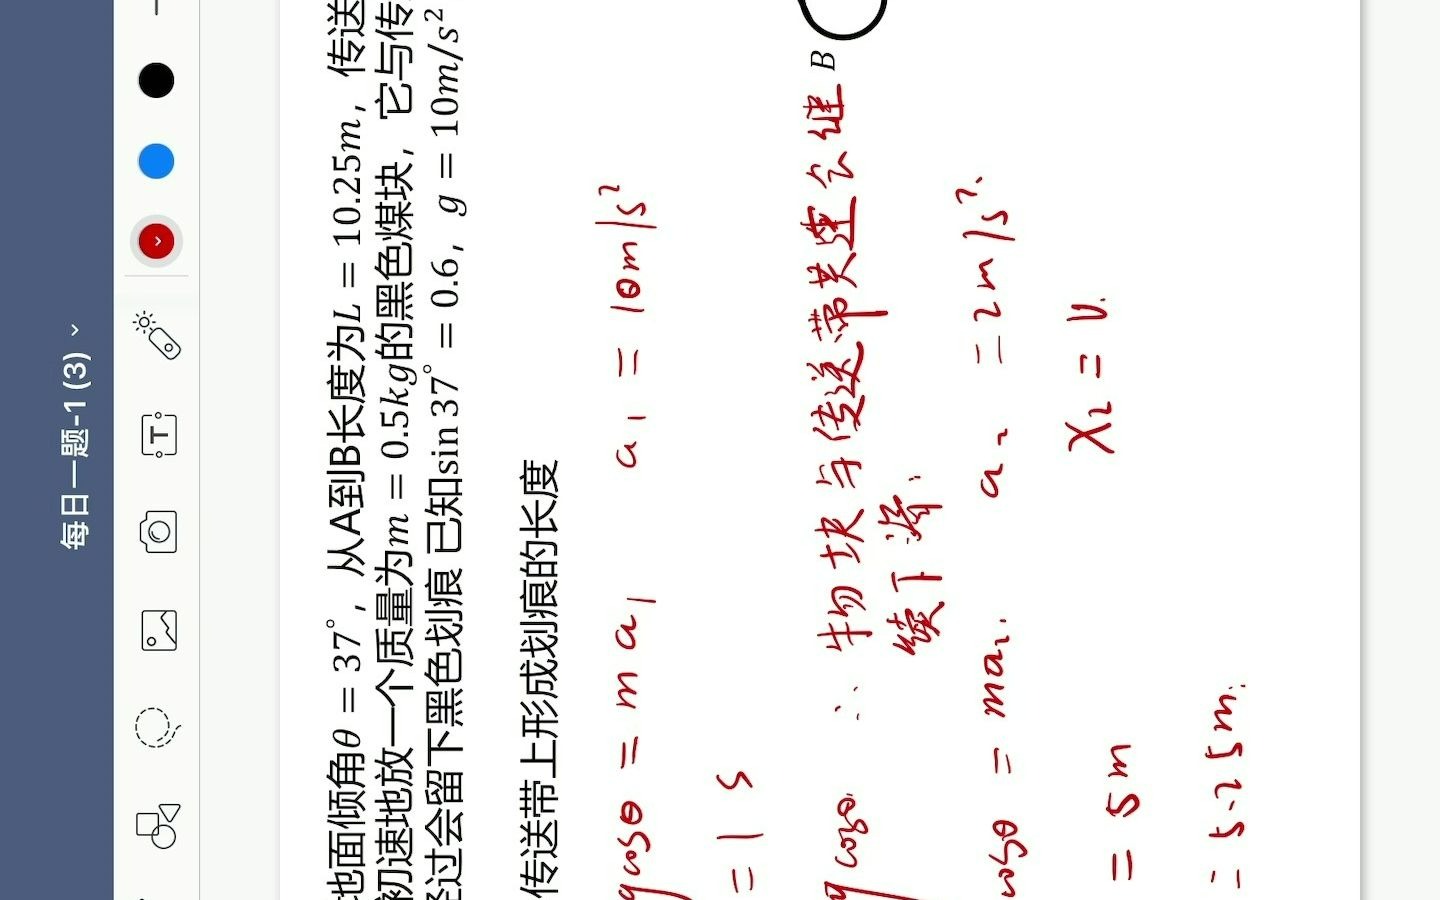 每日一题-1 (3)
地面倾角θ = 37°，从A到B长度为L = 10.25m，传送
初速地放一个质量为m = 0.5kg的黑色煤块，它与传
经过会留下黑色划痕 已知sin 37° = 0.6，g = 10m/s²
传送带上形成划痕的长度
gcosθ = ma₁ a₁ = 10m/s²
= 1s
gcosθ. ∴ 物块与传送带共速会继
续下滑.
B
cosθ = ma₂. a₂ = 2m/s².
= 5m x₂ = v.
= 5.25m.